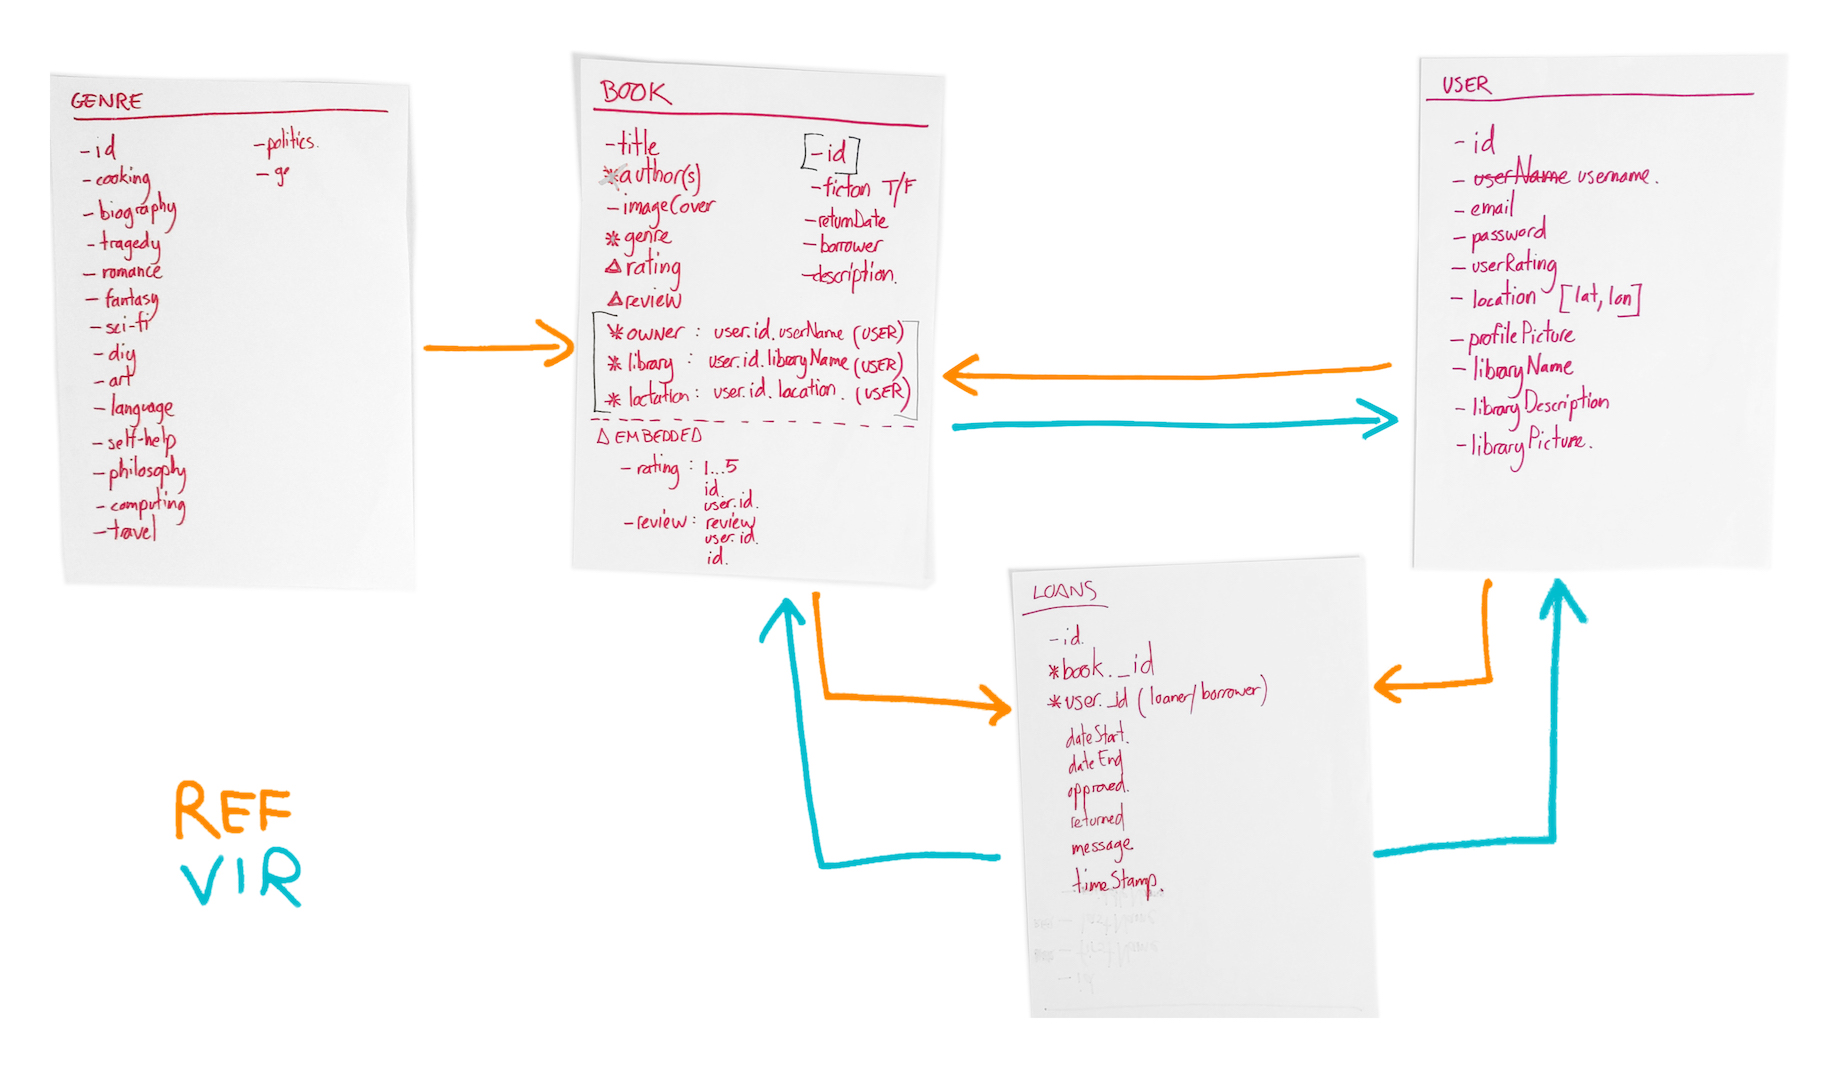 GENRE
- id
- cooking
- biography
- tragedy
- romance
- fantasy
- sci-fi
- diy
- art
- language
- self-help
- philosophy
- computing
- travel
- politics.
- ge
BOOK
- title
* author(s)
- imageCover
* genre
△ rating
△ review
[- id]
- ficton T/F
- returnDate
- borrower
- description.
* owner : user.id.userName (USER)
* library : user.id.libraryName (USER)
* loctation : user.id.location. (USER)
△ EMBEDDED
- rating : 1...5
id.
user.id.
- review : review
user.id.
id.
USER
- id
- userName username.
- email
- password
- userRating
- location [lat, lon]
- profilePicture
- libraryName
- libraryDescription
- libraryPicture.
LOANS
- id.
* book._id
* user._id (loaner/borrower)
dateStart.
dateEnd
approved.
returned
message.
timeStamp.
REF
VIR